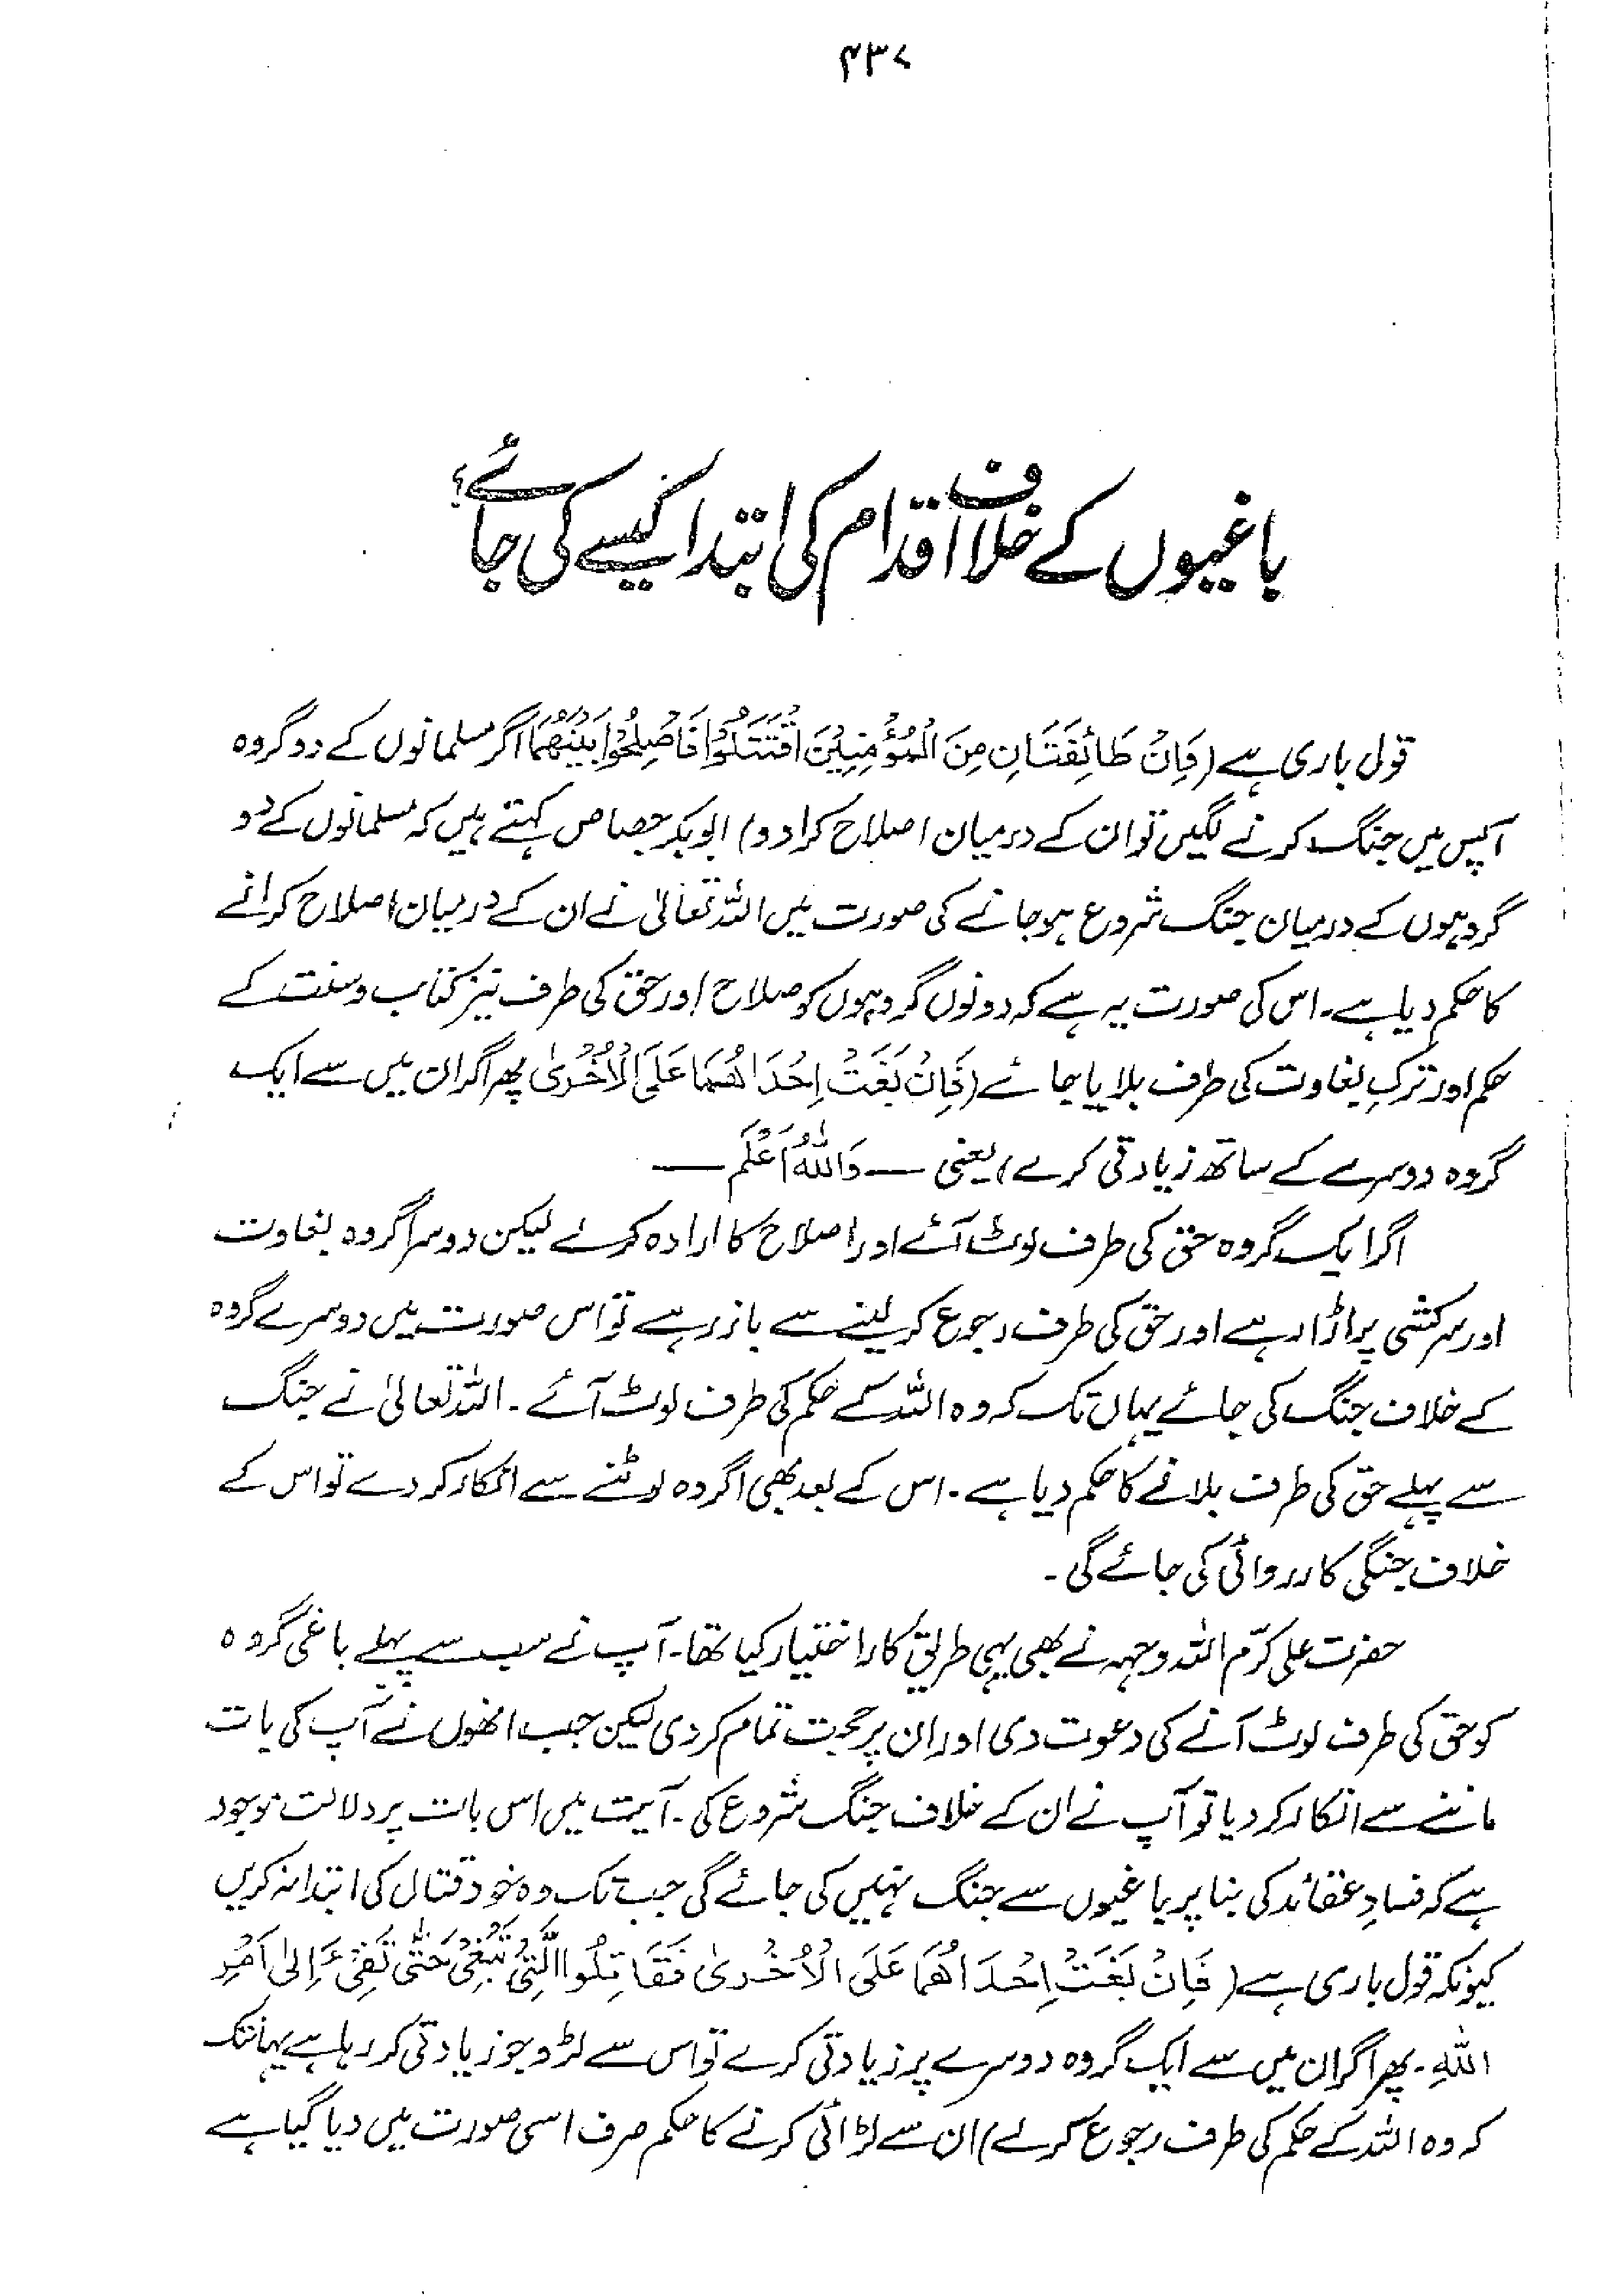 ۴۳۷
باغیوں کے خلاف اقدام کی ابتدا کیسے کی جائے؟
قول باری ہے (فَاِنْ طَائِفَتَانِ مِنَ الْمُؤْمِنِیْنَ اقْتَتَلُوْا فَاَصْلِحُوْا بَیْنَهُمَا اگر مسلمانوں کے دو گروہ
آپس میں جنگ کرنے لگیں تو ان کے درمیان اصلاح کرا دو) ابوبکر جصاص کہتے ہیں کہ مسلمانوں کے دو
گروہوں کے درمیان جنگ شروع ہو جانے کی صورت میں اللہ تعالیٰ نے ان کے درمیان اصلاح کرانے
کا حکم دیا ہے۔ اس کی صورت یہ ہے کہ دونوں گروہوں کو صلاح اور حق کی طرف نیز کتاب و سنت کے
حکم اور ترکِ بغاوت کی طرف بلایا جائے (فَاِنْ بَغَتْ اِحْدَاهُمَا عَلَی الْاُخْرٰی پھر اگر ان میں سے ایک
گروہ دوسرے کے ساتھ زیادتی کرے) یعنی — وَاللّٰهُ اَعْلَمُ —
اگر ایک گروہ حق کی طرف لوٹ آئے اور اصلاح کا ارادہ کرلے لیکن دوسرا گروہ بغاوت
اور سرکشی پر اڑا رہے اور حق کی طرف رجوع کر لینے سے باز رہے تو اس صورت میں دوسرے گروہ
کے خلاف جنگ کی جائے یہاں تک کہ وہ اللہ کے حکم کی طرف لوٹ آئے۔ اللہ تعالیٰ نے جنگ
سے پہلے حق کی طرف بلانے کا حکم دیا ہے۔ اس کے بعد بھی اگر وہ لوٹنے سے انکار کر دے تو اس کے
خلاف جنگی کارروائی کی جائے گی۔
حضرت علی کرّم اللہ وجہہ نے بھی یہی طریق کار اختیار کیا تھا۔ آپ نے سب سے پہلے باغی گروہ
کو حق کی طرف لوٹ آنے کی دعوت دی اور ان پر حجت تمام کر دی لیکن جب انھوں نے آپ کی بات
ماننے سے انکار کر دیا تو آپ نے ان کے خلاف جنگ شروع کی۔ آیت میں اس بات پر دلالت موجود
ہے کہ فسادِ عقائد کی بنا پر باغیوں سے جنگ نہیں کی جائے گی جب تک وہ خود قتال کی ابتدا نہ کریں
کیونکہ قول باری ہے (فَاِنْ بَغَتْ اِحْدَاهُمَا عَلَی الْاُخْرٰی فَقَاتِلُوا الَّتِیْ تَبْغِیْ حَتّٰی تَفِیْءَ اِلٰی اَمْرِ
اللّٰهِ۔ پھر اگر ان میں سے ایک گروہ دوسرے پر زیادتی کرے تو اس سے لڑو جو زیادتی کر رہا ہے یہانتک
کہ وہ اللہ کے حکم کی طرف رجوع کرلے) ان سے لڑائی کرنے کا حکم صرف اسی صورت میں دیا گیا ہے